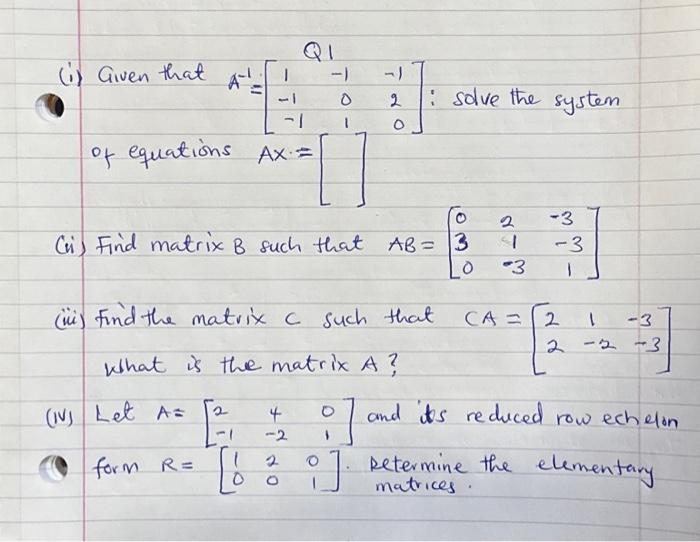 Q1
(i) Given that A⁻¹ = [1 -1 -1; -1 0 2; -1 1 0] : solve the system
of equations AX = [ ]
(ii) Find matrix B such that AB = [0 2 -3; 3 1 -3; 0 -3 1]
(iii) Find the matrix C such that CA = [2 1 -3; 2 -2 -3]
What is the matrix A?
(iv) Let A = [2 4 0; -1 -2 1] and its reduced row echelon
form R = [1 2 0; 0 0 1]. Determine the elementary
matrices.